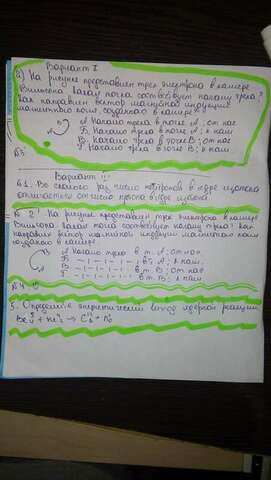 Вариант I
2) На рисунке представлен трек электрона в камере
Вильсона. Какая точка соответствует началу трека?
Как направлен вектор магнитной индукции
магнитного поля, созданного в камере?
А Начало трека в точке А, от нас
Б. Начало трека в точке А, к нам
В. Начало трека в точке В; от нас
Г Начало трека в точке В; к нам.
Вариант
Во сколько раз число нейтронов в ядре изотопа
отличается от числа протонов
№ 2 На рисунке представлен трек электрона в камере
Вильсона. Какая точка соответствует началу трека? Как
направлен вектор магнитной индукции магнитного поля
созданного в камере
А Начало трека в т. А, от нас
Б в т. А; к нам.
В в т. В; от нас
Г в т. В; к нам
5. Определите энергетический выход ядерной реакции